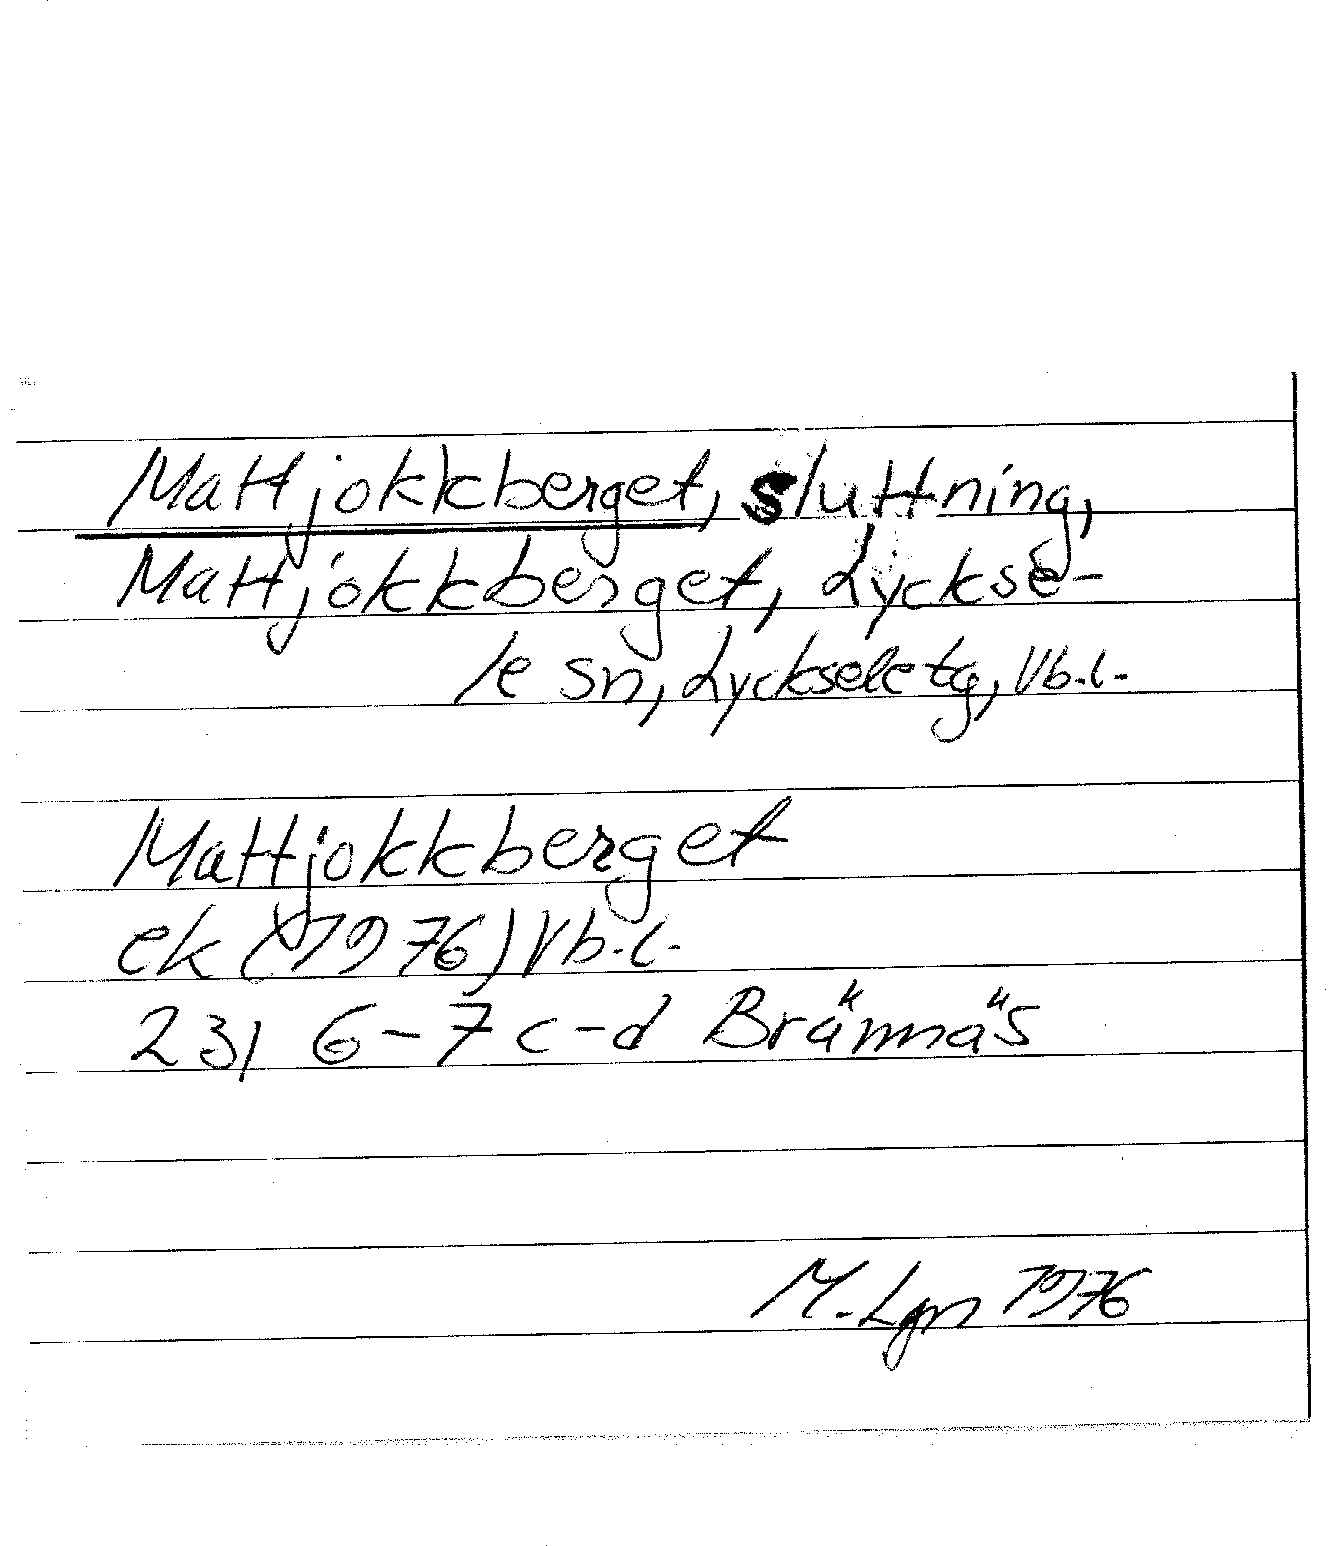 Mattjokkberget, sluttning,
Mattjokkberget, Lyckse-
le sn, Lycksele tg, Vb.l.
Mattjokkberget
ek (1976) Vb.l.
23I 6-7 c-d Brännäs
M. Lgn 1976